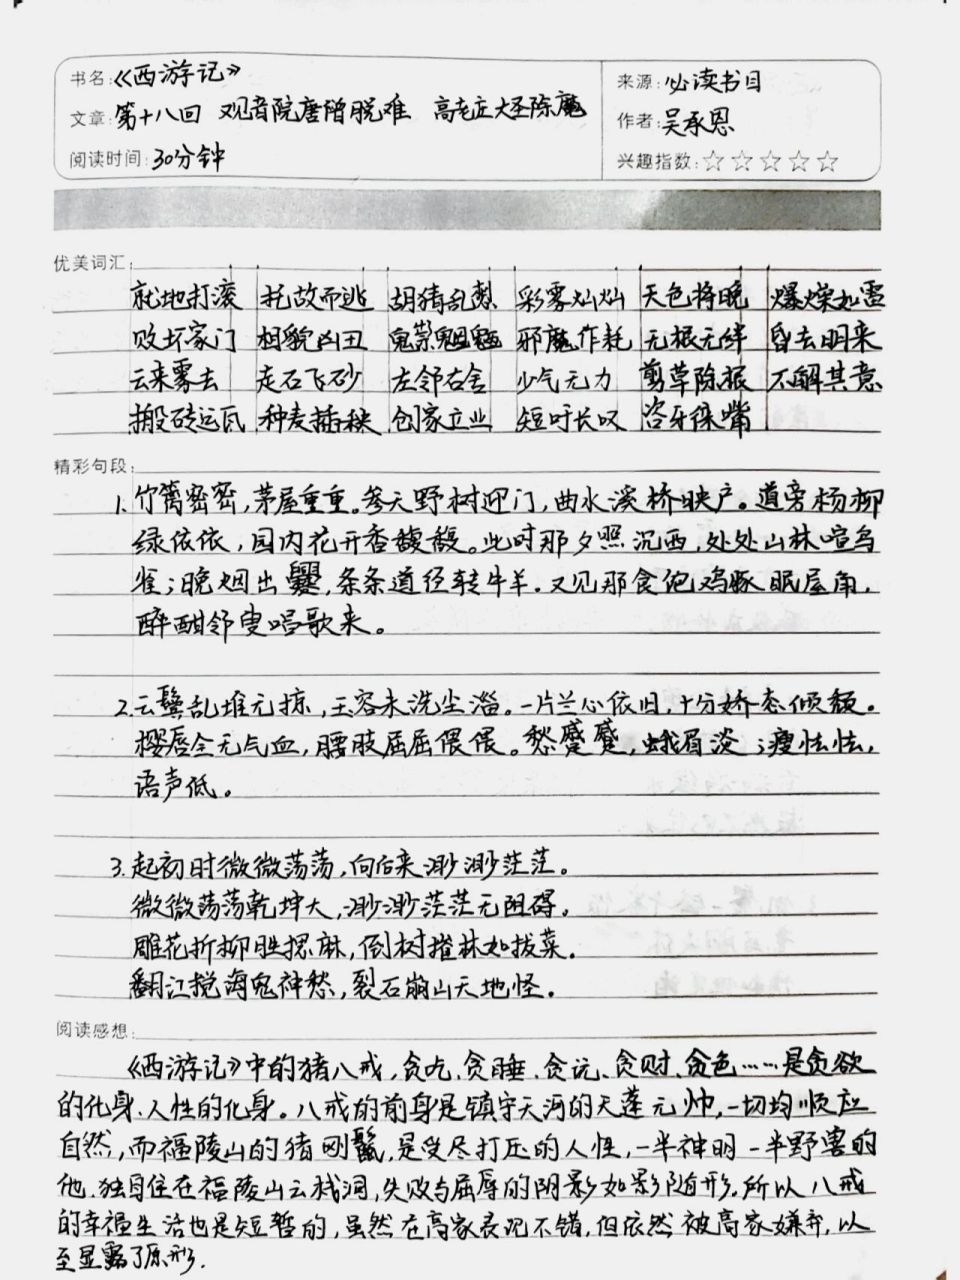 书名:《西游记》
来源:必读书目
文章:第十八回 观音院唐僧脱难 高老庄大圣除魔
作者:吴承恩
阅读时间:30分钟
兴趣指数:☆☆☆☆☆
优美词汇:
就地打滚 托故而逃 胡猜乱想 彩雾灿灿 天色将晚 爆燥如雷
败坏家门 相貌凶丑 鬼祟魍魉 邪魔作耗 无根无绊 昏去明来
云来雾去 走石飞砂 左邻右舍 少气无力 剪草除根 不解其意
搬砖运瓦 种麦插秧 创家立业 短吁长叹 咨牙俫嘴
精彩句段:
1.竹篱密密,茅屋重重。参天野树迎门,曲水溪桥映户。道旁杨柳
绿依依,园内花开香馥馥。此时那夕照沉西,处处山林喧鸟
雀;晚烟出爨,条条道径转牛羊。又见那食饱鸡豚眠屋角,
醉酣邻叟唱歌来。
2.云鬓乱堆无掠,玉容未洗尘淄。一片兰心依旧,十分娇态倾颓。
樱唇全无气血,腰肢屈屈偎偎。愁蹙蹙,蛾眉淡;瘦怯怯,
语声低。
3.起初时微微荡荡,向后来渺渺茫茫。
微微荡荡乾坤大,渺渺茫茫无阻碍。
雕花折柳胜揌麻,倒树摧林如拔菜。
翻江搅海鬼神愁,裂石崩山天地怪。
阅读感想:
《西游记》中的猪八戒,贪吃、贪睡、贪玩、贪财、贪色……是贪欲
的化身、人性的化身。八戒的前身是镇守天河的天蓬元帅,一切均顺应
自然,而福陵山的猪刚鬣,是受尽打压的人性,一半神明一半野兽的
他、独自住在福陵山云栈洞,失败与屈辱的阴影如影随形。所以八戒
的幸福生活也是短暂的,虽然在高家表现不错,但依然被高家嫌弃,以
至显露了原形.